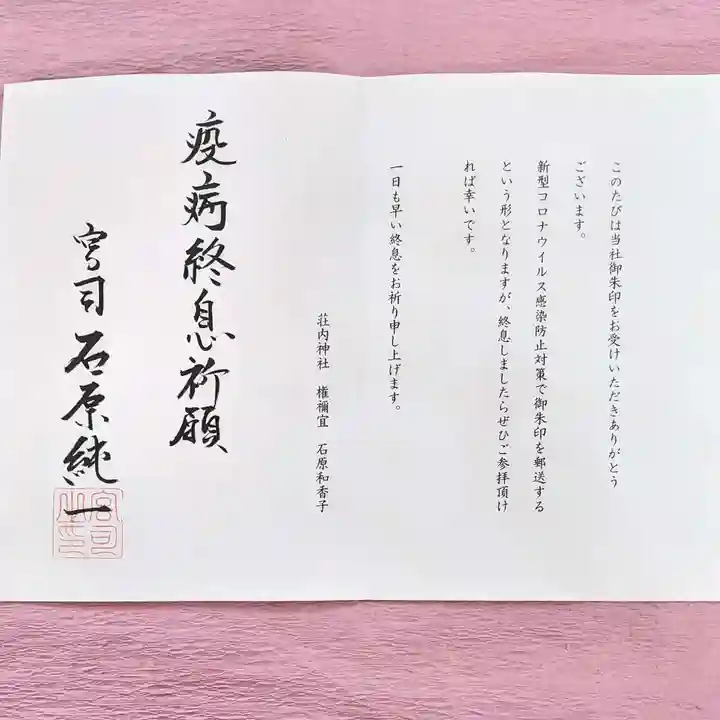 このたびは当社御朱印をお受けいただきありがとう
ございます。
新型コロナウイルス感染防止対策で御朱印を郵送する
という形となりますが、終息しましたらぜひご参拝頂け
れば幸いです。
一日も早い終息をお祈り申し上げます。
荘内神社　権禰宜　石原和香子
疫病終息祈願
宮司石原純一
宮司之印